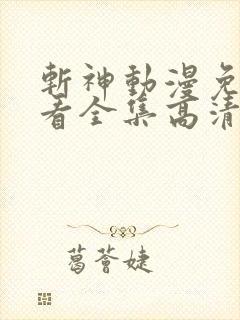 斬神動漫免
看全集高清
葛薈婕